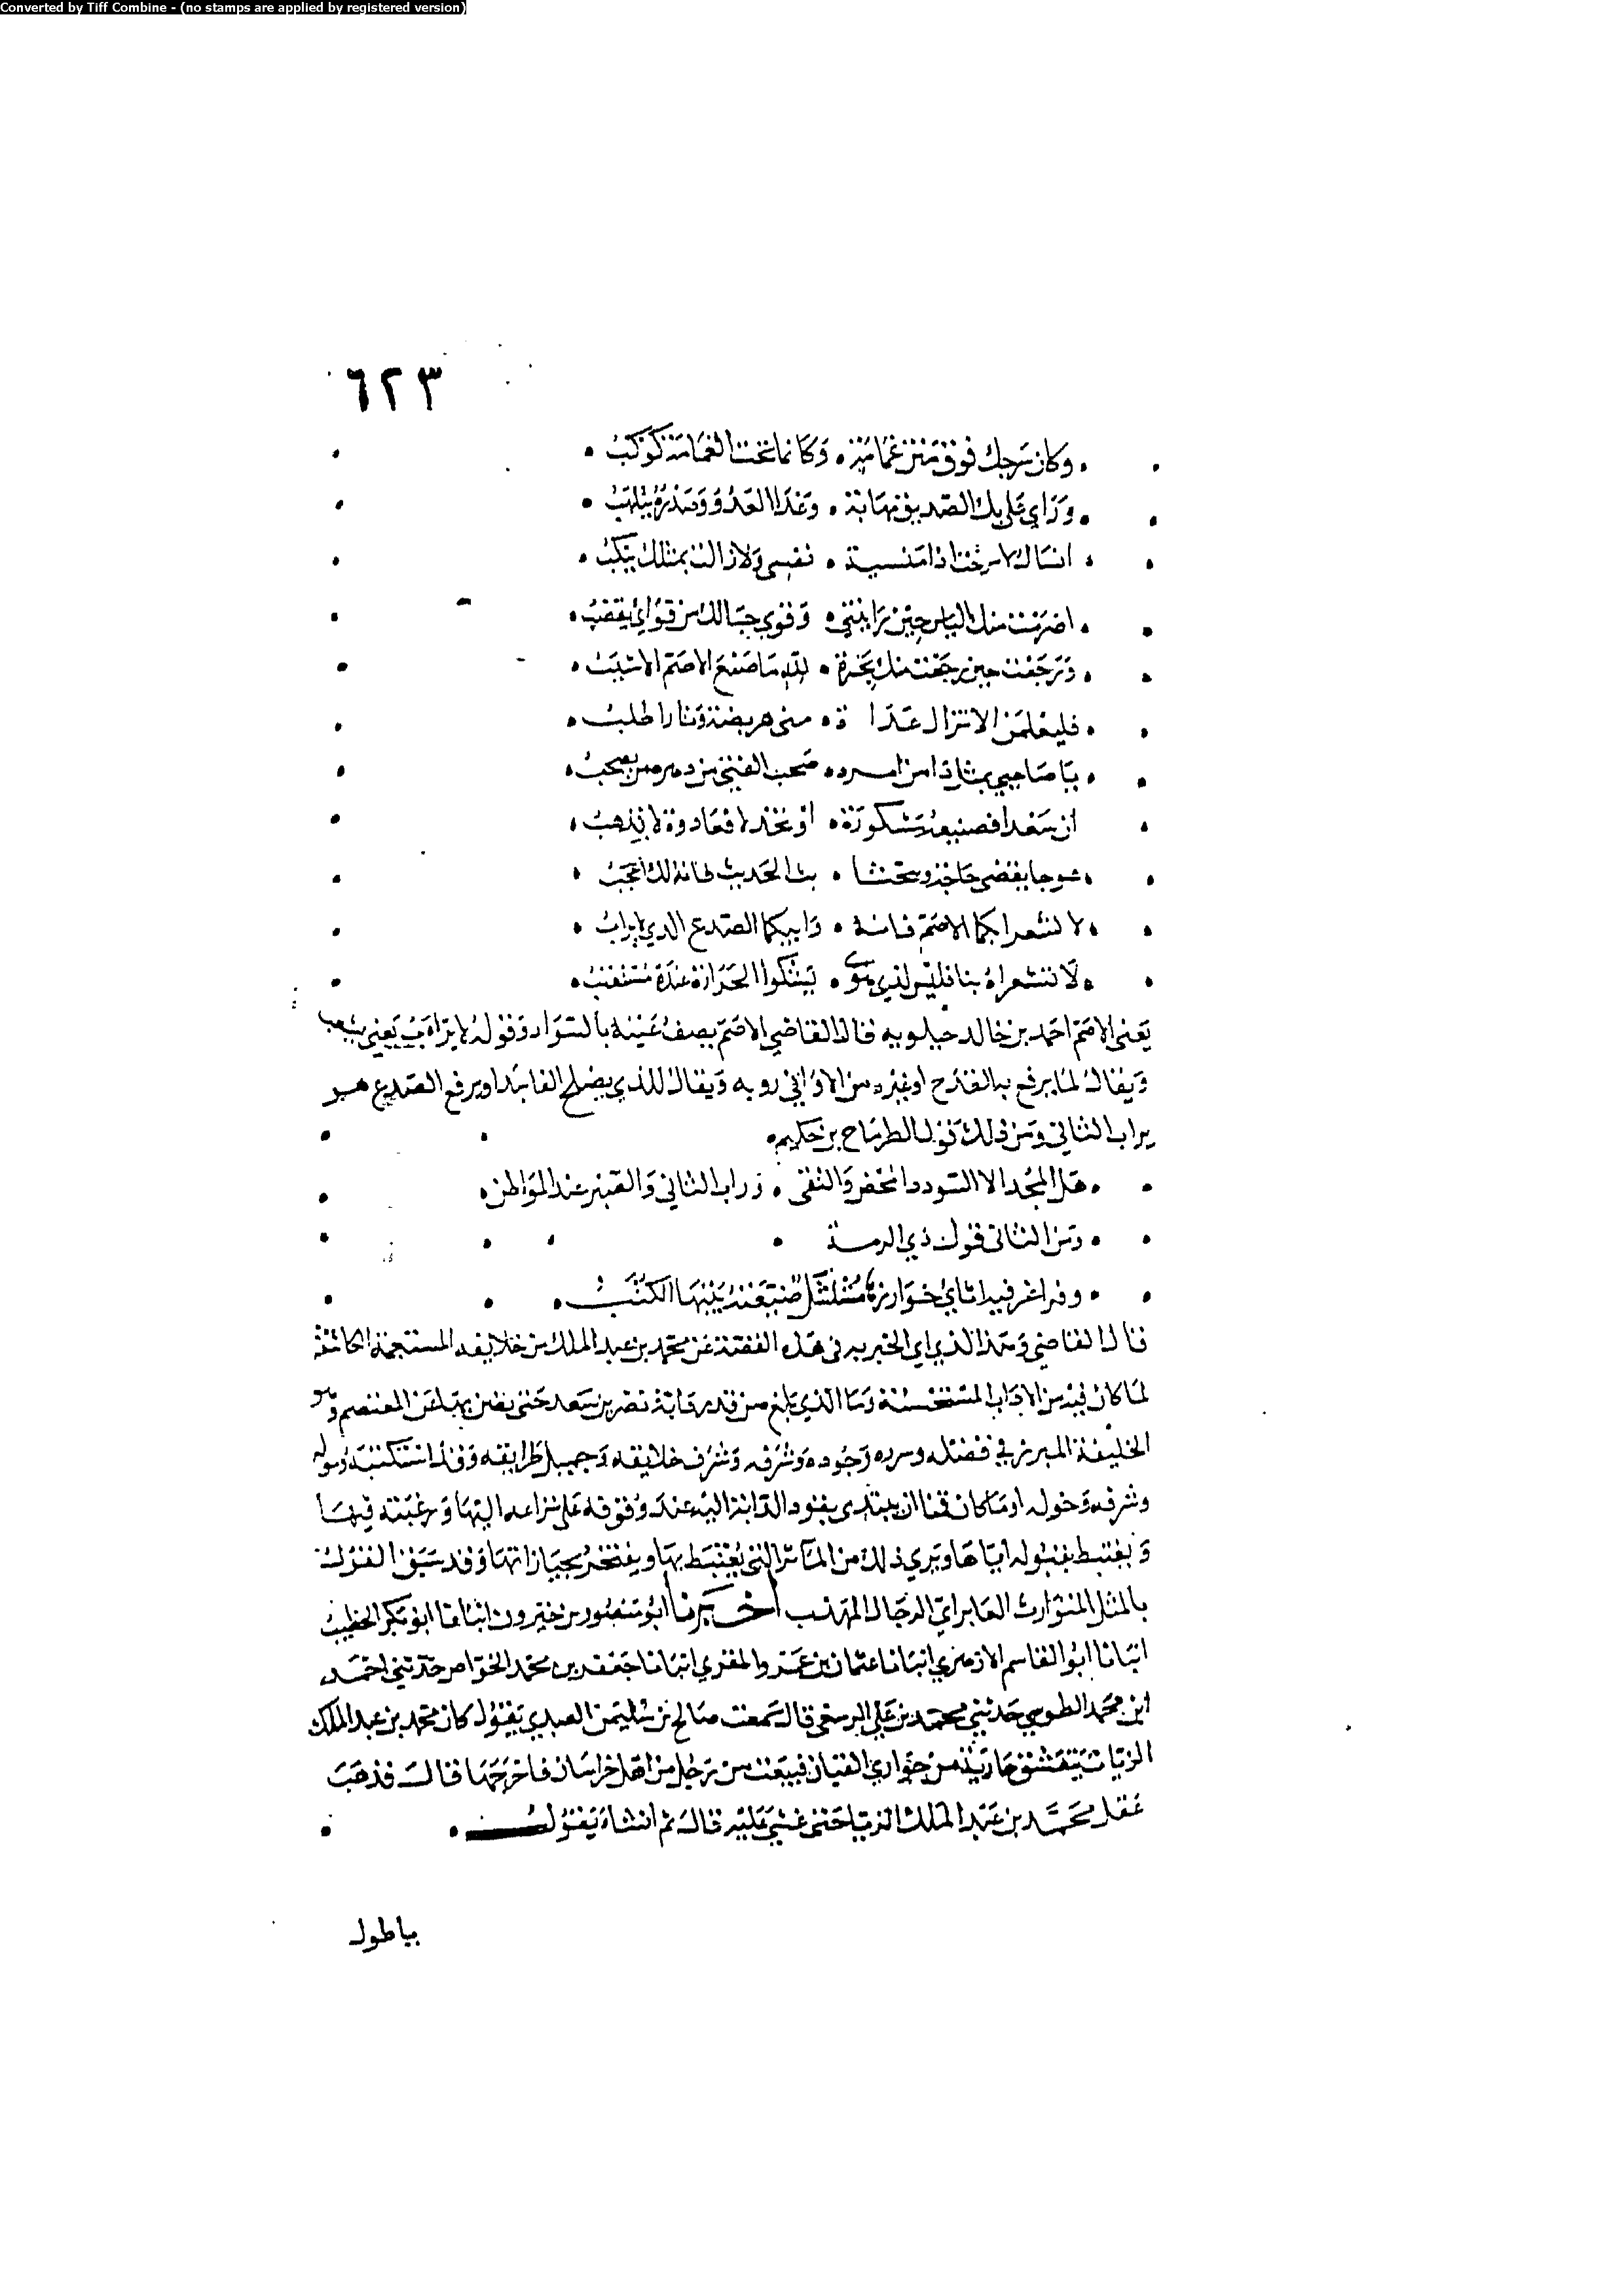 Converted by Tiff Combine - (no stamps are applied by registered version)
٦٢٣
وكان سرجك فوق متن غمامة وكانما تحت الغمامة كوكب
وراي على بك الصديق مهابة وغدا العدو وصدره يتلهب
انساك لا برحت اذا منسية نفسي ولا زالت بمثلك تنكب
اضمرت منك الياس حين رايتني وقوي حبالك من قواي يقضب
ورجعت حين رجعت منك بحسرة لله ما صنع الاصم الاشيب
فليعلمن الا تزال عداوة مني مريضة وثارا طلب
يا صاحبي بمثل ذا من امره صحب الفتى من دهره من يصحب
ان سعدا فصنيعة مشكورة او تخذلا فعداوة لا تذهب
عوجا نقضي حاجة وتحننا بث الحديث فانه لك اعجب
لا تشعرا بكما الاصم فانه وابيكما الصدع الذي لا يراب
لا تشعراه بنا فليس لذي هوى يشكوا الحرارة عنده مستعتب
يعني الاصم احمد بن خالد حيلويه قال القاضي الاصم يصف عينه بالسواد وقوله لا يراب يعني يشعب
ويقال لما يرقع به القدح او غيره من الاواني روبه ويقال للذي يصلح الفاسد او يرقع الصدع هو
يراب الثاي ومن ذلك قول الطرماح بن حكيم
هل المجد الا السودد المحض والتقى وراب الثاي والصبر عند المواطن
ومن الثاي قول ذي الرمة
وفرا غرفيه اثاي خوارزها مشلشل ضيعته بينها الكتب
قال القاضي وهذا الذي اي الخبر به في هذه القصة عن محمد بن عبد الملك من خلايقه المستعجمة
لما كان فيه من الاداب المستحسنة وما الذي بلغ من قدر دابة نصر بن سعد حتى يظن بها عن المعتصم وهو
الخليفة المبرز في فضله وسروه وجوده وشرفه وشرف خلايقه وجميل طرايقه وقد استكتبه
وشرفه وخوله او ما كان قمنا ان يبتدي بقود الدابة اليه عند وقوفه على نزاعه اليها ورغبته فيها
ويغتبط بقبوله اياها ويري ذلك من الماثر التي يغتبط بها ويفتخر بحيازتها وقد سبق القول
بالمثل المتوارث العابر اي الرجال المهذب اخبرنا ابو منصور بن خيرون انبانا ابو بكر الخطيب
انبانا ابو القاسم الازهري انبانا عثمان بن عمرو المقري انبانا جعفر بن محمد الخواص حدثني احمد
ابن محمد الطوسي حدثني محمد بن علي قال سمعت صالح بن سليمن العبدي يقول كان محمد بن عبد الملك
الزيات يتعشق جارية من جواري القيان فبيعت من رجل من اهل خراسان فاخرجها قال فذهب
عقل محمد بن عبد الملك الزيات حتى غشي عليه قال ثم انشاء يقول
ياطول